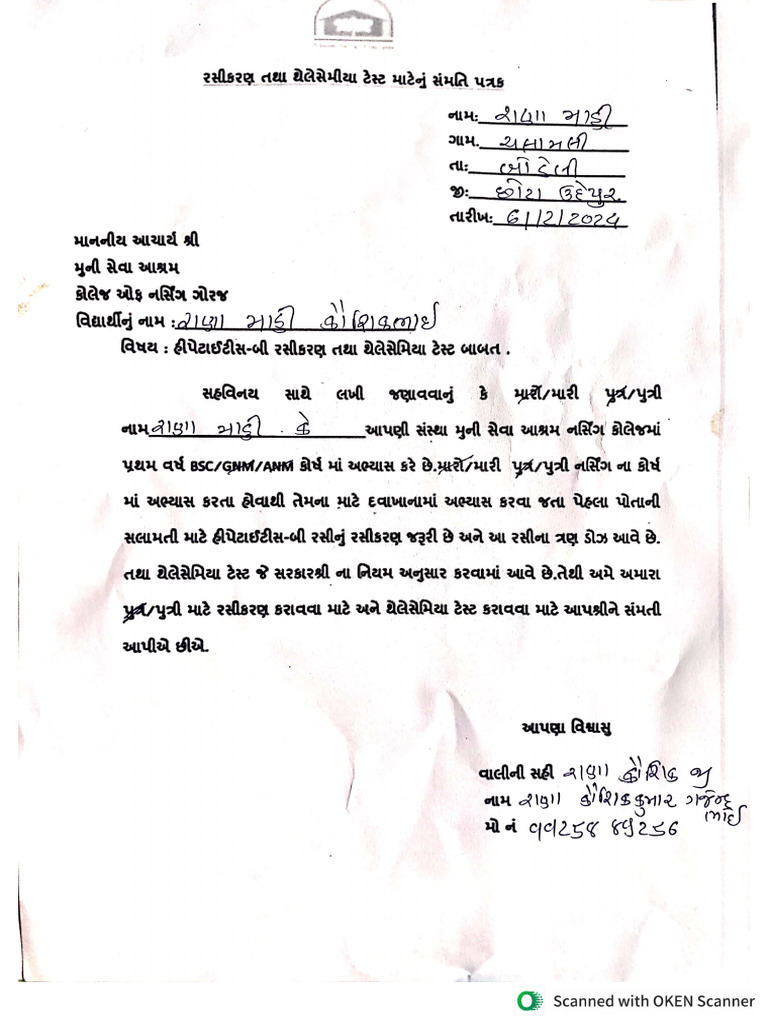 રસીકરણ તથા થેલેસેમીયા ટેસ્ટ માટેનું સંમતિ પત્રક
નામ: રાણા માહી
ગામ. ચલામલી
તા: બોડેલી
જી: છોટા ઉદેપુર.
તારીખ: 6/12/2024
માનનીય આચાર્ય શ્રી
મુની સેવા આશ્રમ
કોલેજ ઓફ નર્સિંગ ગોરજ
વિદ્યાર્થીનું નામ : રાણા માહી કૌશિકભાઈ
વિષય : હીપેટાઈટીસ-બી રસીકરણ તથા થેલેસેમિયા ટેસ્ટ બાબત .
સહવિનય સાથે લખી જણાવવાનું કે મારો/મારી પુત્ર/પુત્રી
નામ રાણા માહી . કે આપણી સંસ્થા મુની સેવા આશ્રમ નર્સિંગ કોલેજમાં
પ્રથમ વર્ષ BSC/GNM/ANM કોર્ષ માં અભ્યાસ કરે છે.મારો/મારી પુત્ર/પુત્રી નર્સિંગ ના કોર્ષ
માં અભ્યાસ કરતા હોવાથી તેમના માટે દવાખાનામાં અભ્યાસ કરવા જતા પેહલા પોતાની
સલામતી માટે હીપેટાઈટીસ-બી રસીનું રસીકરણ જરૂરી છે અને આ રસીના ત્રણ ડોઝ આવે છે.
તથા થેલેસેમિયા ટેસ્ટ જે સરકારશ્રી ના નિયમ અનુસાર કરવામાં આવે છે.તેથી અમે અમારા
પુત્ર/પુત્રી માટે રસીકરણ કરાવવા માટે અને થેલેસેમિયા ટેસ્ટ કરાવવા માટે આપશ્રીને સંમતી
આપીએ છીએ.
આપણા વિશ્વાસુ
વાલીની સહી રાણા કૌશિક જી
નામ રાણા કૌશિકકુમાર ગજેન્દ્રભાઈ
મો નં ૭૭258 49256
Scanned with OKEN Scanner